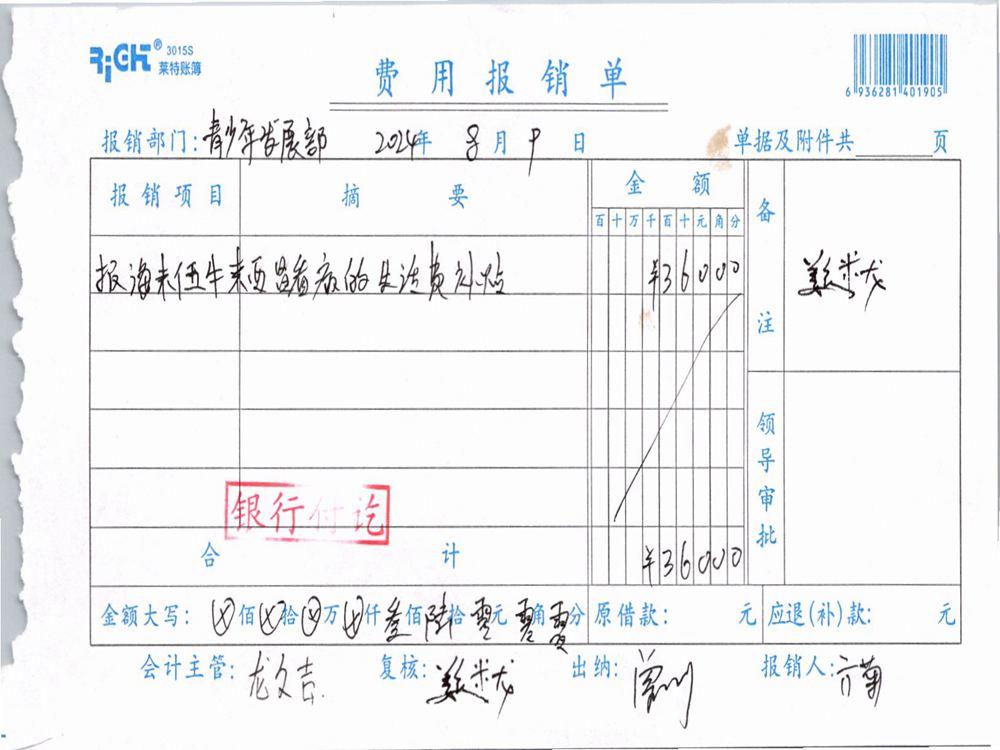 RiGHT® 3015S
莱特账簿
费用报销单
6 936281 401905
报销部门:青少年发展部 2024年 8月9日 单据及附件共 页
报销项目 摘要 金额 备注
百十万千百十元角分
¥36000
姜米龙
领导审批
银行付讫
合计 ¥36000
金额大写: ⊗佰⊗拾⊗万⊗仟叁佰陆拾零元零角零分 原借款: 元 应退(补)款: 元
会计主管:龙文吉 复核:姜米龙 出纳: 报销人: